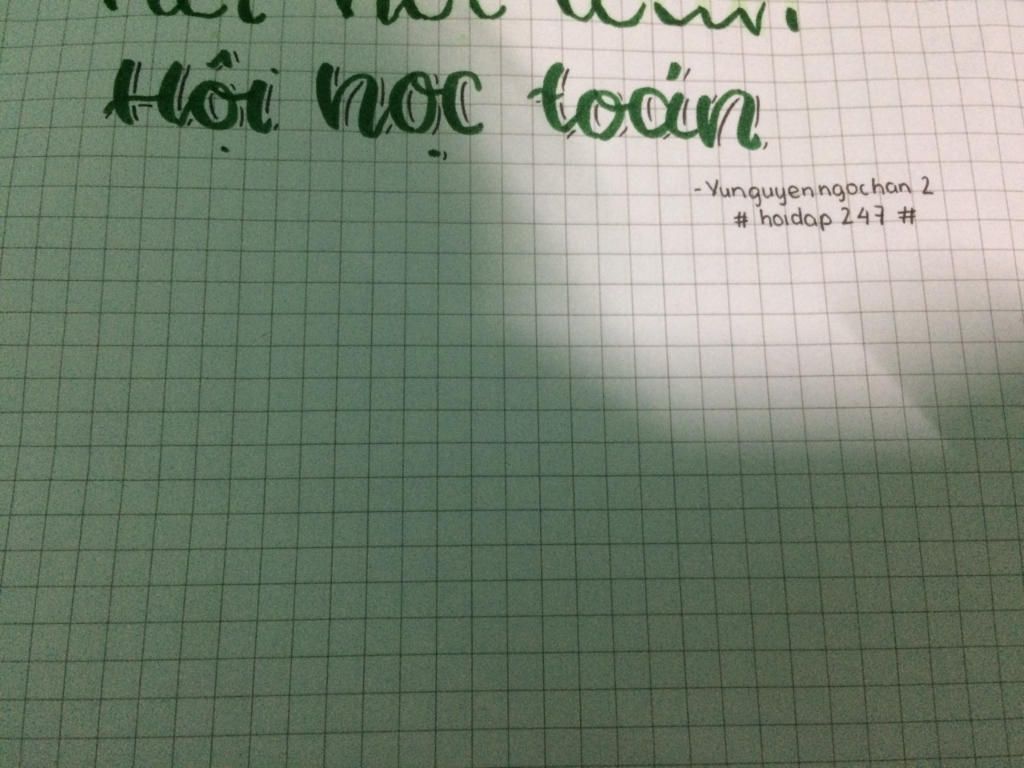 Hội học toán
-Yunguyenngochan 2
# hoidap 247 #